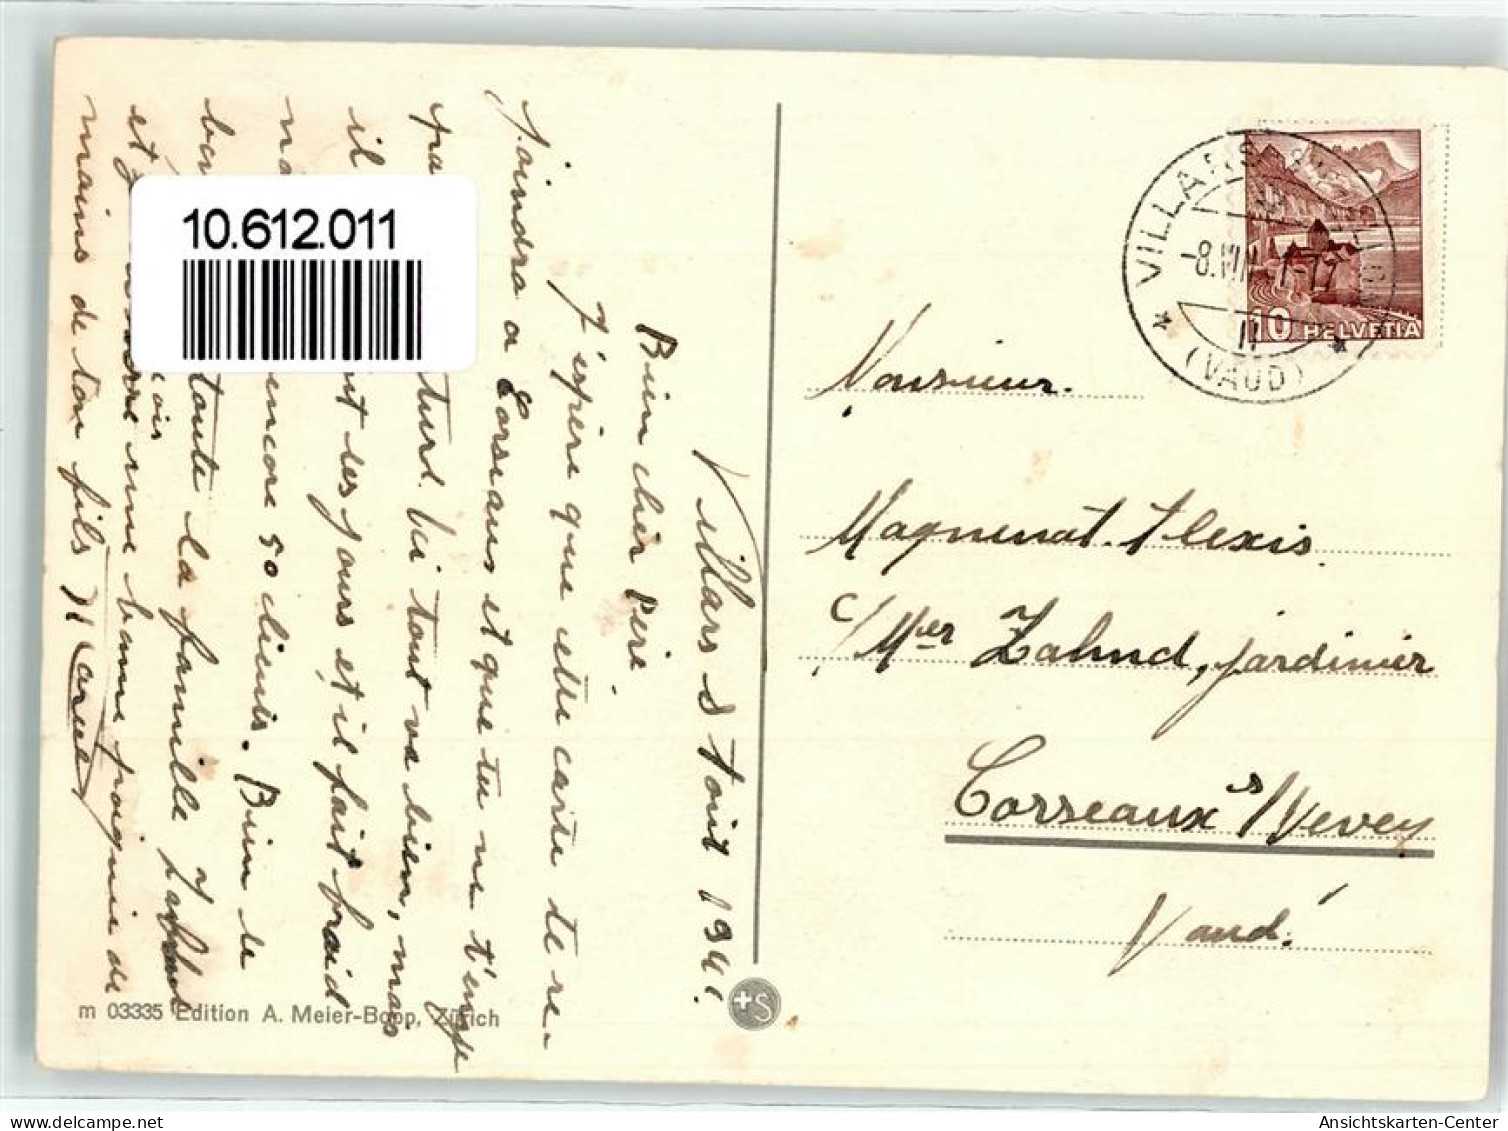 Villars 8 Aout 1941.
Bien cher Père
J'espère que cette carte te re-
joindra a Corseaux et que tu ne t'enuye
pa ture. Ici tout va bien, mais
il nt ses jours et il fait fraid
encore 50 clients. Bien le
bon toute la famille Zahnd
et ois serre une bonne poignée de
mains de ton fils
10.612.011
m 03335 Edition A. Meier-Bopp, Zürich
+S
VILLARS
-8.VIII
II
(VAUD)
10 HELVETIA
Monsieur.
Magnenat. Alexis
c/ Mer Zahnd, jardinier
Corseaux s/Vevey
Vaud.
Ansichtskarten-Center